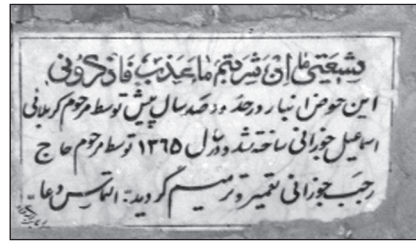 شیعتی ما ان شربتم ماء عذب فاذکرونی
این حوض انبار در حدود صد سال پیش توسط مرحوم کربلائی
اسماعیل جورانی ساخته شد و در سال ۱۳٦۵ توسط مرحوم حاج
رجب جورانی تعمیر و ترمیم گردید. التماس دعا